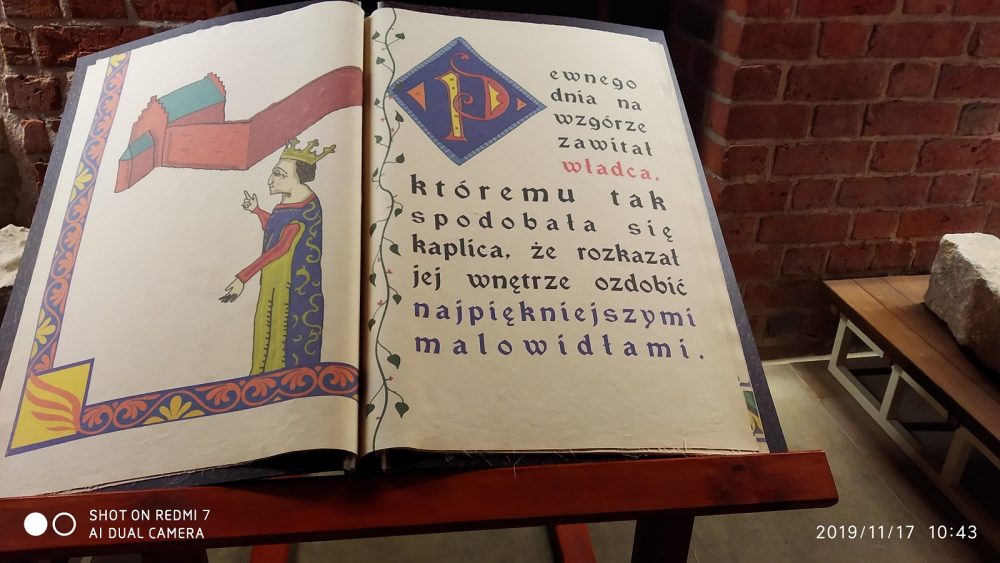 Pewnego
dnia na
wzgórze
zawitał
władca,
któremu tak
spodobała się
kaplica, że rozkazał
jej wnętrze ozdobić
najpiękniejszymi
malowidłami.
SHOT ON REDMI 7
AI DUAL CAMERA
2019/11/17 10:43